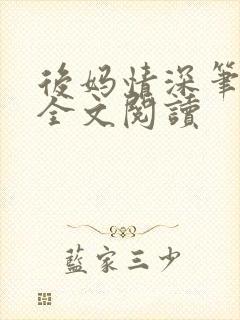 後妈情深笔
全文閱讀
藍家三少